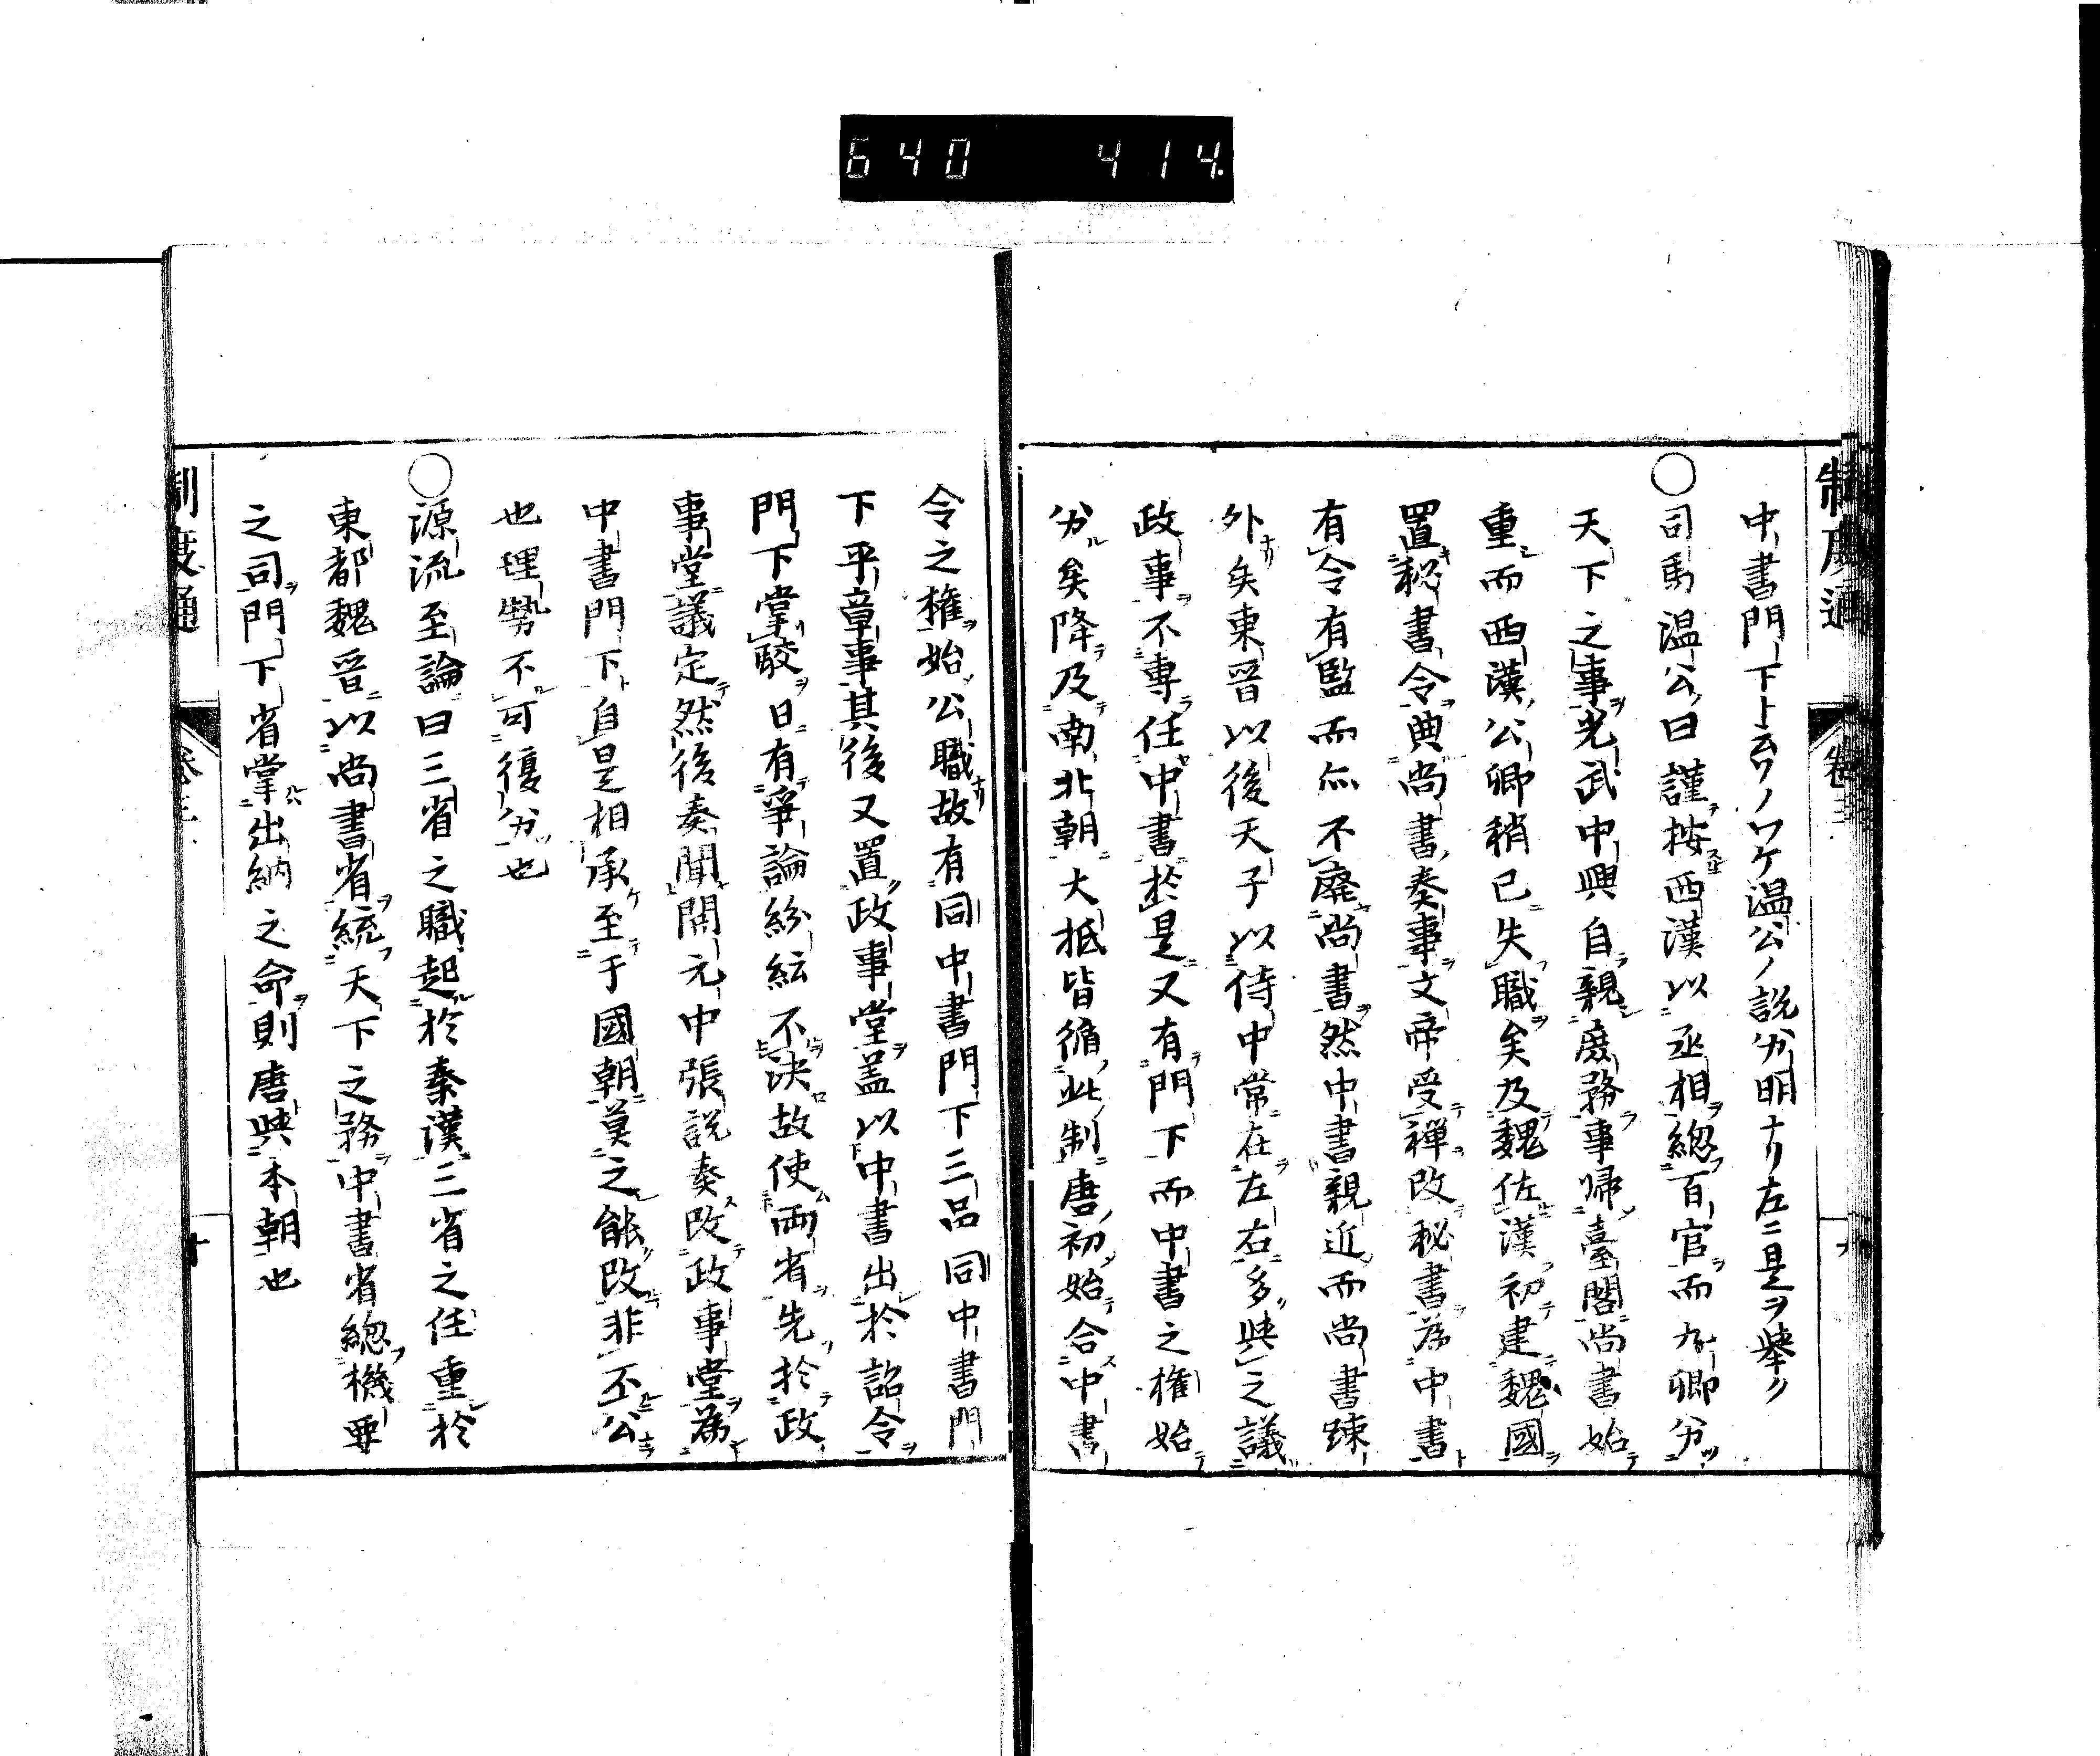 640 414.
制度通 卷三 九
中書門下ト云フノワケ温公ノ説分明ナリ左ニ是ヲ擧ク
○司馬温公曰謹按西漢以丞相總百官而九卿分
天下之事光武中興自親庶務事歸臺閣尚書始
重而西漢公卿稍已失職矣及魏佐漢初建魏國
置秘書令典尚書奏事文帝受禪改秘書為中書
有令有監而亦不廢尚書然中書親近而尚書踈
外矣東晉以後天子以侍中常在左右多與之議
政事不專任中書於是又有門下而中書之権始
分矣降及南北朝大抵皆循此制唐初始合中書
令之権始公職故有同中書門下三品同中書門
下平章事其後又置政事堂盖以中書出於詔令
門下掌駁日有爭論紛紜不決故使両省先於政
事堂議定然後奏聞開元中張説奏改政事堂為
中書門下自是相承至于國朝莫之能改非不公
也理勢不可復分也
○源流至論曰三省之職起於秦漢三省之任重於
東都魏晉以尚書省統天下之務中書省總機要
之司門下省掌出納之命則唐與本朝也
制度通 卷三 十